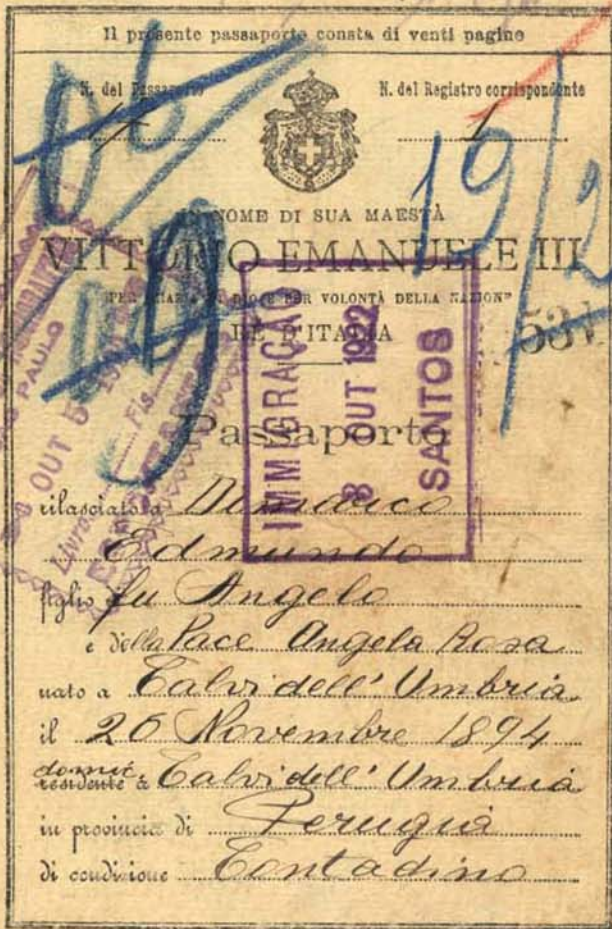 Il presente passaporto consta di venti pagine
N. del Passaporto
N. del Registro corrispondente
1
19/2
IN NOME DI SUA MAESTÀ
VITTORIO EMANUELE III
PER GRAZIA DI DIO E PER VOLONTÀ DELLA NAZIONE
RE D'ITALIA
531
IMMIGRAÇÃO
8 OUT 1922
SANTOS
PAULO
OUT 5
Livro Fls.
Passaporto
rilasciato a
Edmundo
figlio fu Angelo
e della Pace Angela Rosa
nato a Calvi dell' Umbria
il 26 Novembre 1894
domic. residente a Calvi dell' Umbria
in provincia di Perugia
di condizione Contadino